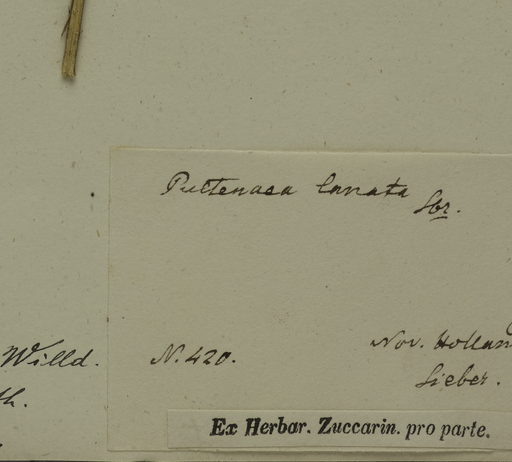 Pultenaea lanata Sbr.
Willd.
N. 420.
Nov. Hollan
th.
Sieber.
Ex Herbar. Zuccarin. pro parte.